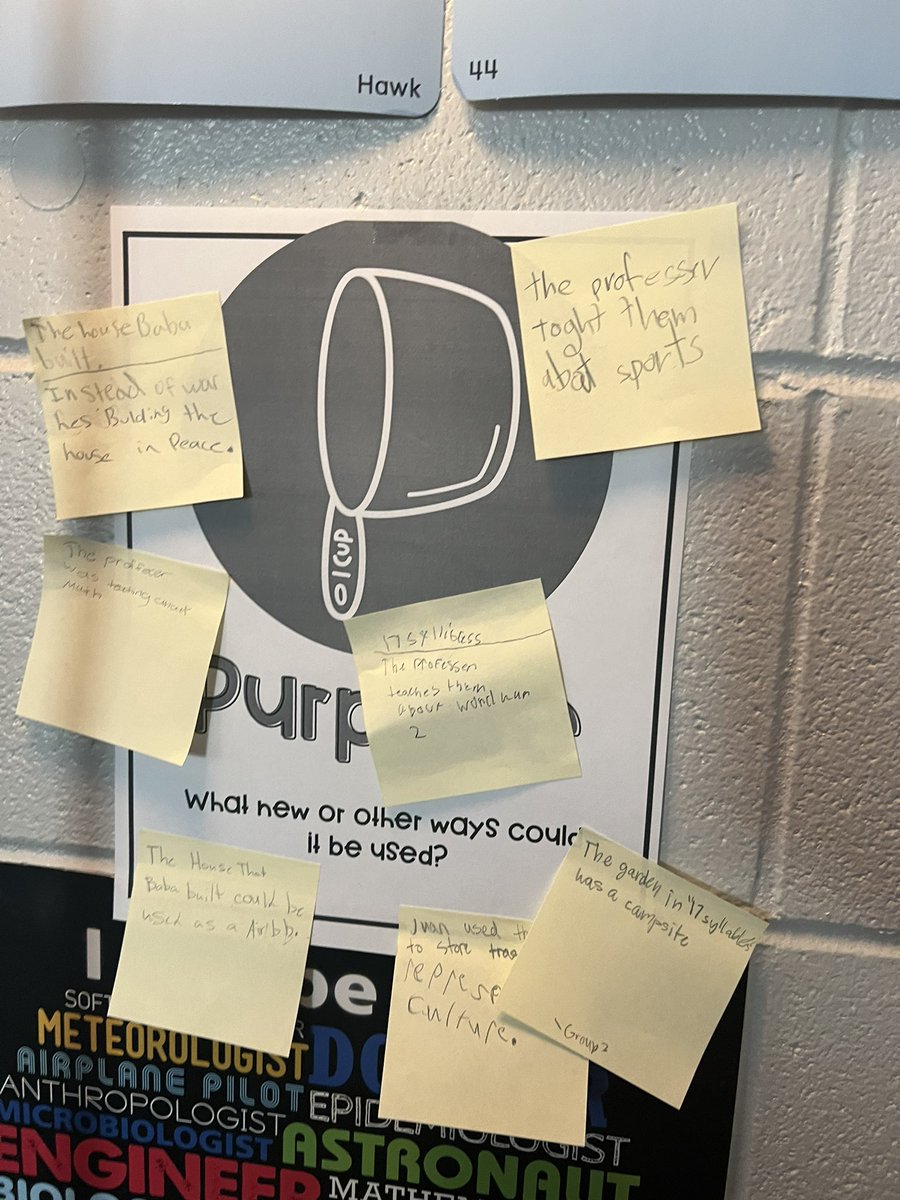 Hawk
44
the professer
toght them
abot sports
The house Baba
built.
Instead of war
hes Bulding the
house in Peace.
1 Cup
0
The profecer
was teaching
Math
17 syllibless
The Professer
teaches them
about world war
2
Purp
What new or other ways could
it be used?
The House That
Baba built could be
used as a Airbb.
The garden in "17 syllables
was a campsite
- Group 2
Juan used th
to store tras
represe
Culture.
I
be
SOFT
R
METEOROLOGIST
DO
AIRPLANE PILOT
ANTHROPOLOGIST
EPIDEMIOLOGIST
MICROBIOLOGIST
ASTRONAUT
ENGINEER
MATHEM
BIOLO